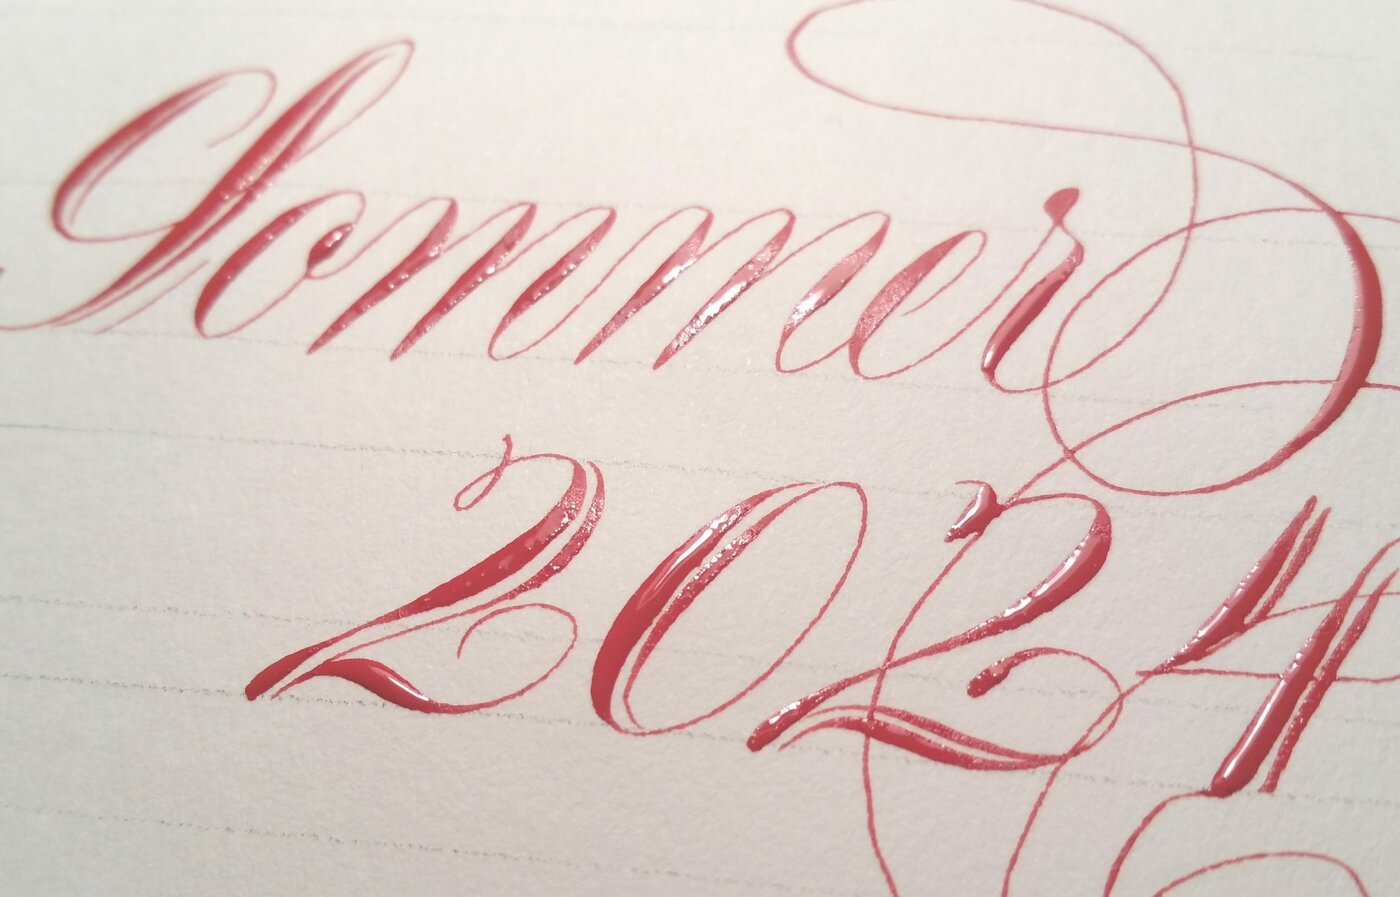 Sommer
2024